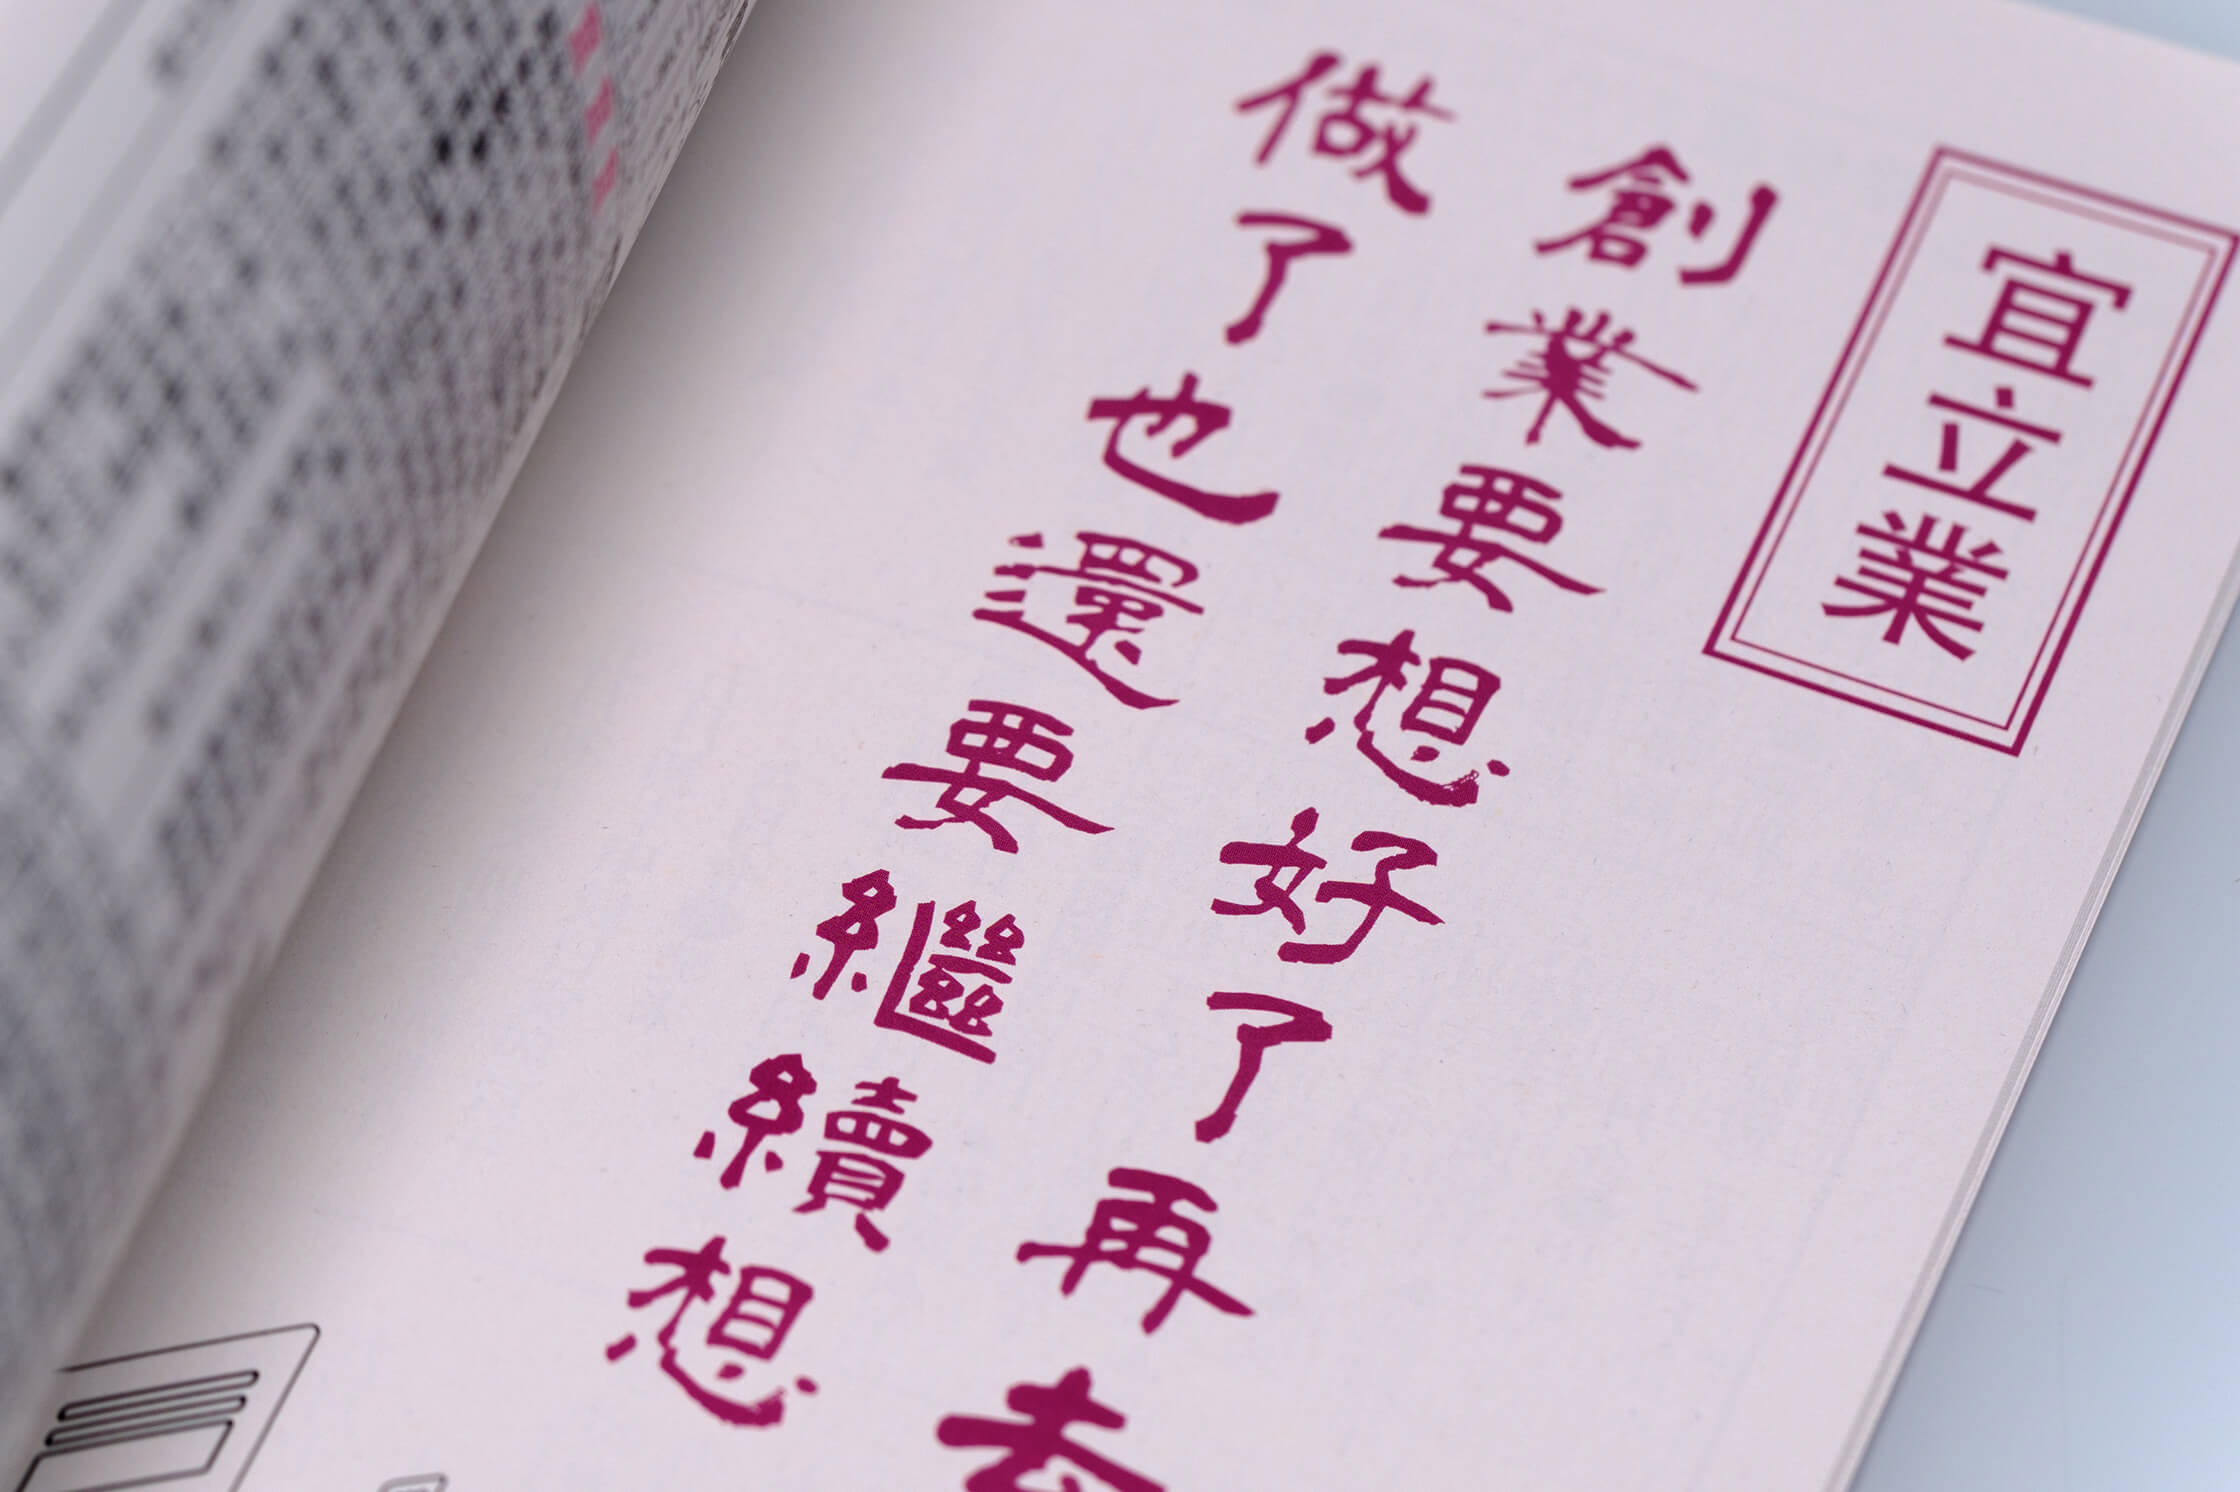 宜立業
創業要想好了再去
做了也還要繼續想